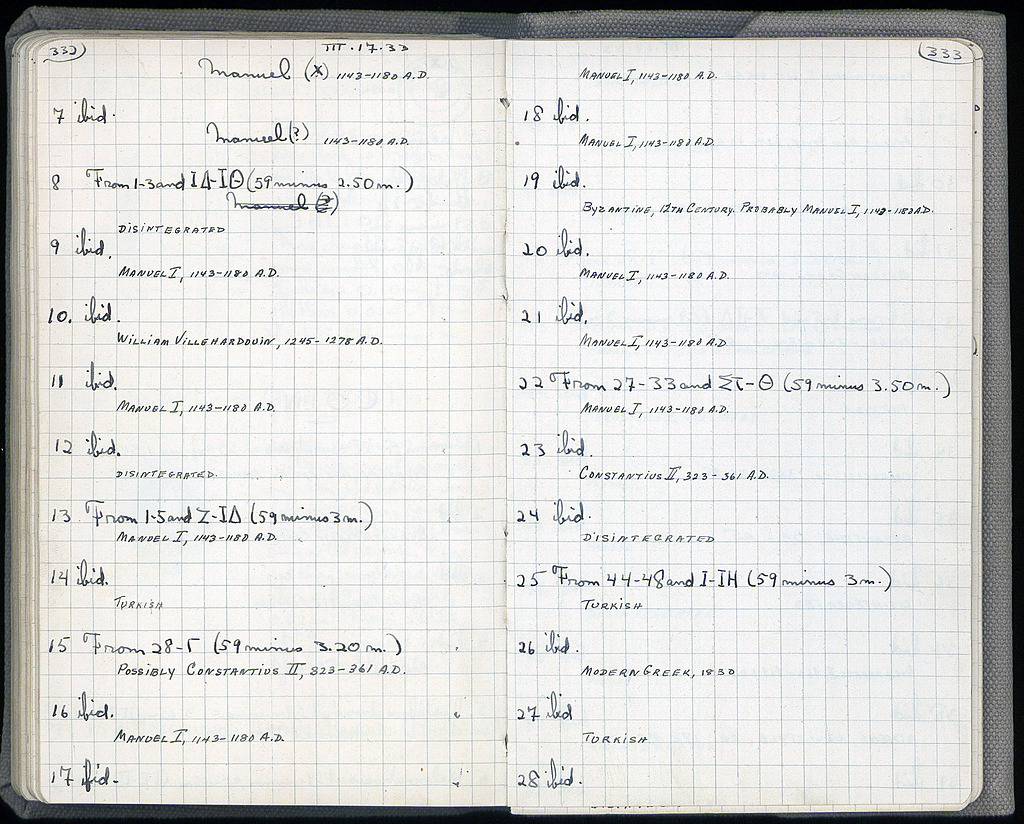 332
III.17.33
Manuel (x) 1143-1180 A.D.
7 ibid.
Manuel (?) 1143-1180 A.D.
8 From 1-3 and ΙΔ-ΙΘ (59 minus 2.50 m.)
Manuel (?)
DISINTEGRATED
9 ibid.
MANUEL I, 1143-1180 A.D.
10. ibid.
WILLIAM VILLEHARDOUIN, 1245-1278 A.D.
11 ibid.
MANUEL I, 1143-1180 A.D.
12 ibid.
DISINTEGRATED.
13 From 1-5 and Z-ΙΔ (59 minus 3 m.)
MANUEL I, 1143-1180 A.D.
14 ibid.
TURKISH
15 From 28-Γ (59 minus 3.20 m.)
POSSIBLY CONSTANTIUS II, 323-361 A.D.
16 ibid.
MANUEL I, 1143-1180 A.D.
17 ibid-
333
MANUEL I, 1143-1180 A.D.
18 ibid.
MANUEL I, 1143-1180 A.D.
19 ibid.
BYZANTINE, 12TH CENTURY. PROBABLY MANUEL I, 1143-1180 A.D.
20 ibid.
MANUEL I, 1143-1180 A.D.
21 ibid.
MANUEL I, 1143-1180 A.D.
22 From 27-33 and Σ̄Τ-Θ (59 minus 3.50 m.)
MANUEL I, 1143-1180 A.D.
23 ibid.
CONSTANTIUS II, 323-361 A.D.
24 ibid.
DISINTEGRATED
25 From 44-48 and I-IH (59 minus 3 m.)
TURKISH
26 ibid.
MODERN GREEK, 1830
27 ibid
TURKISH
28 ibid.